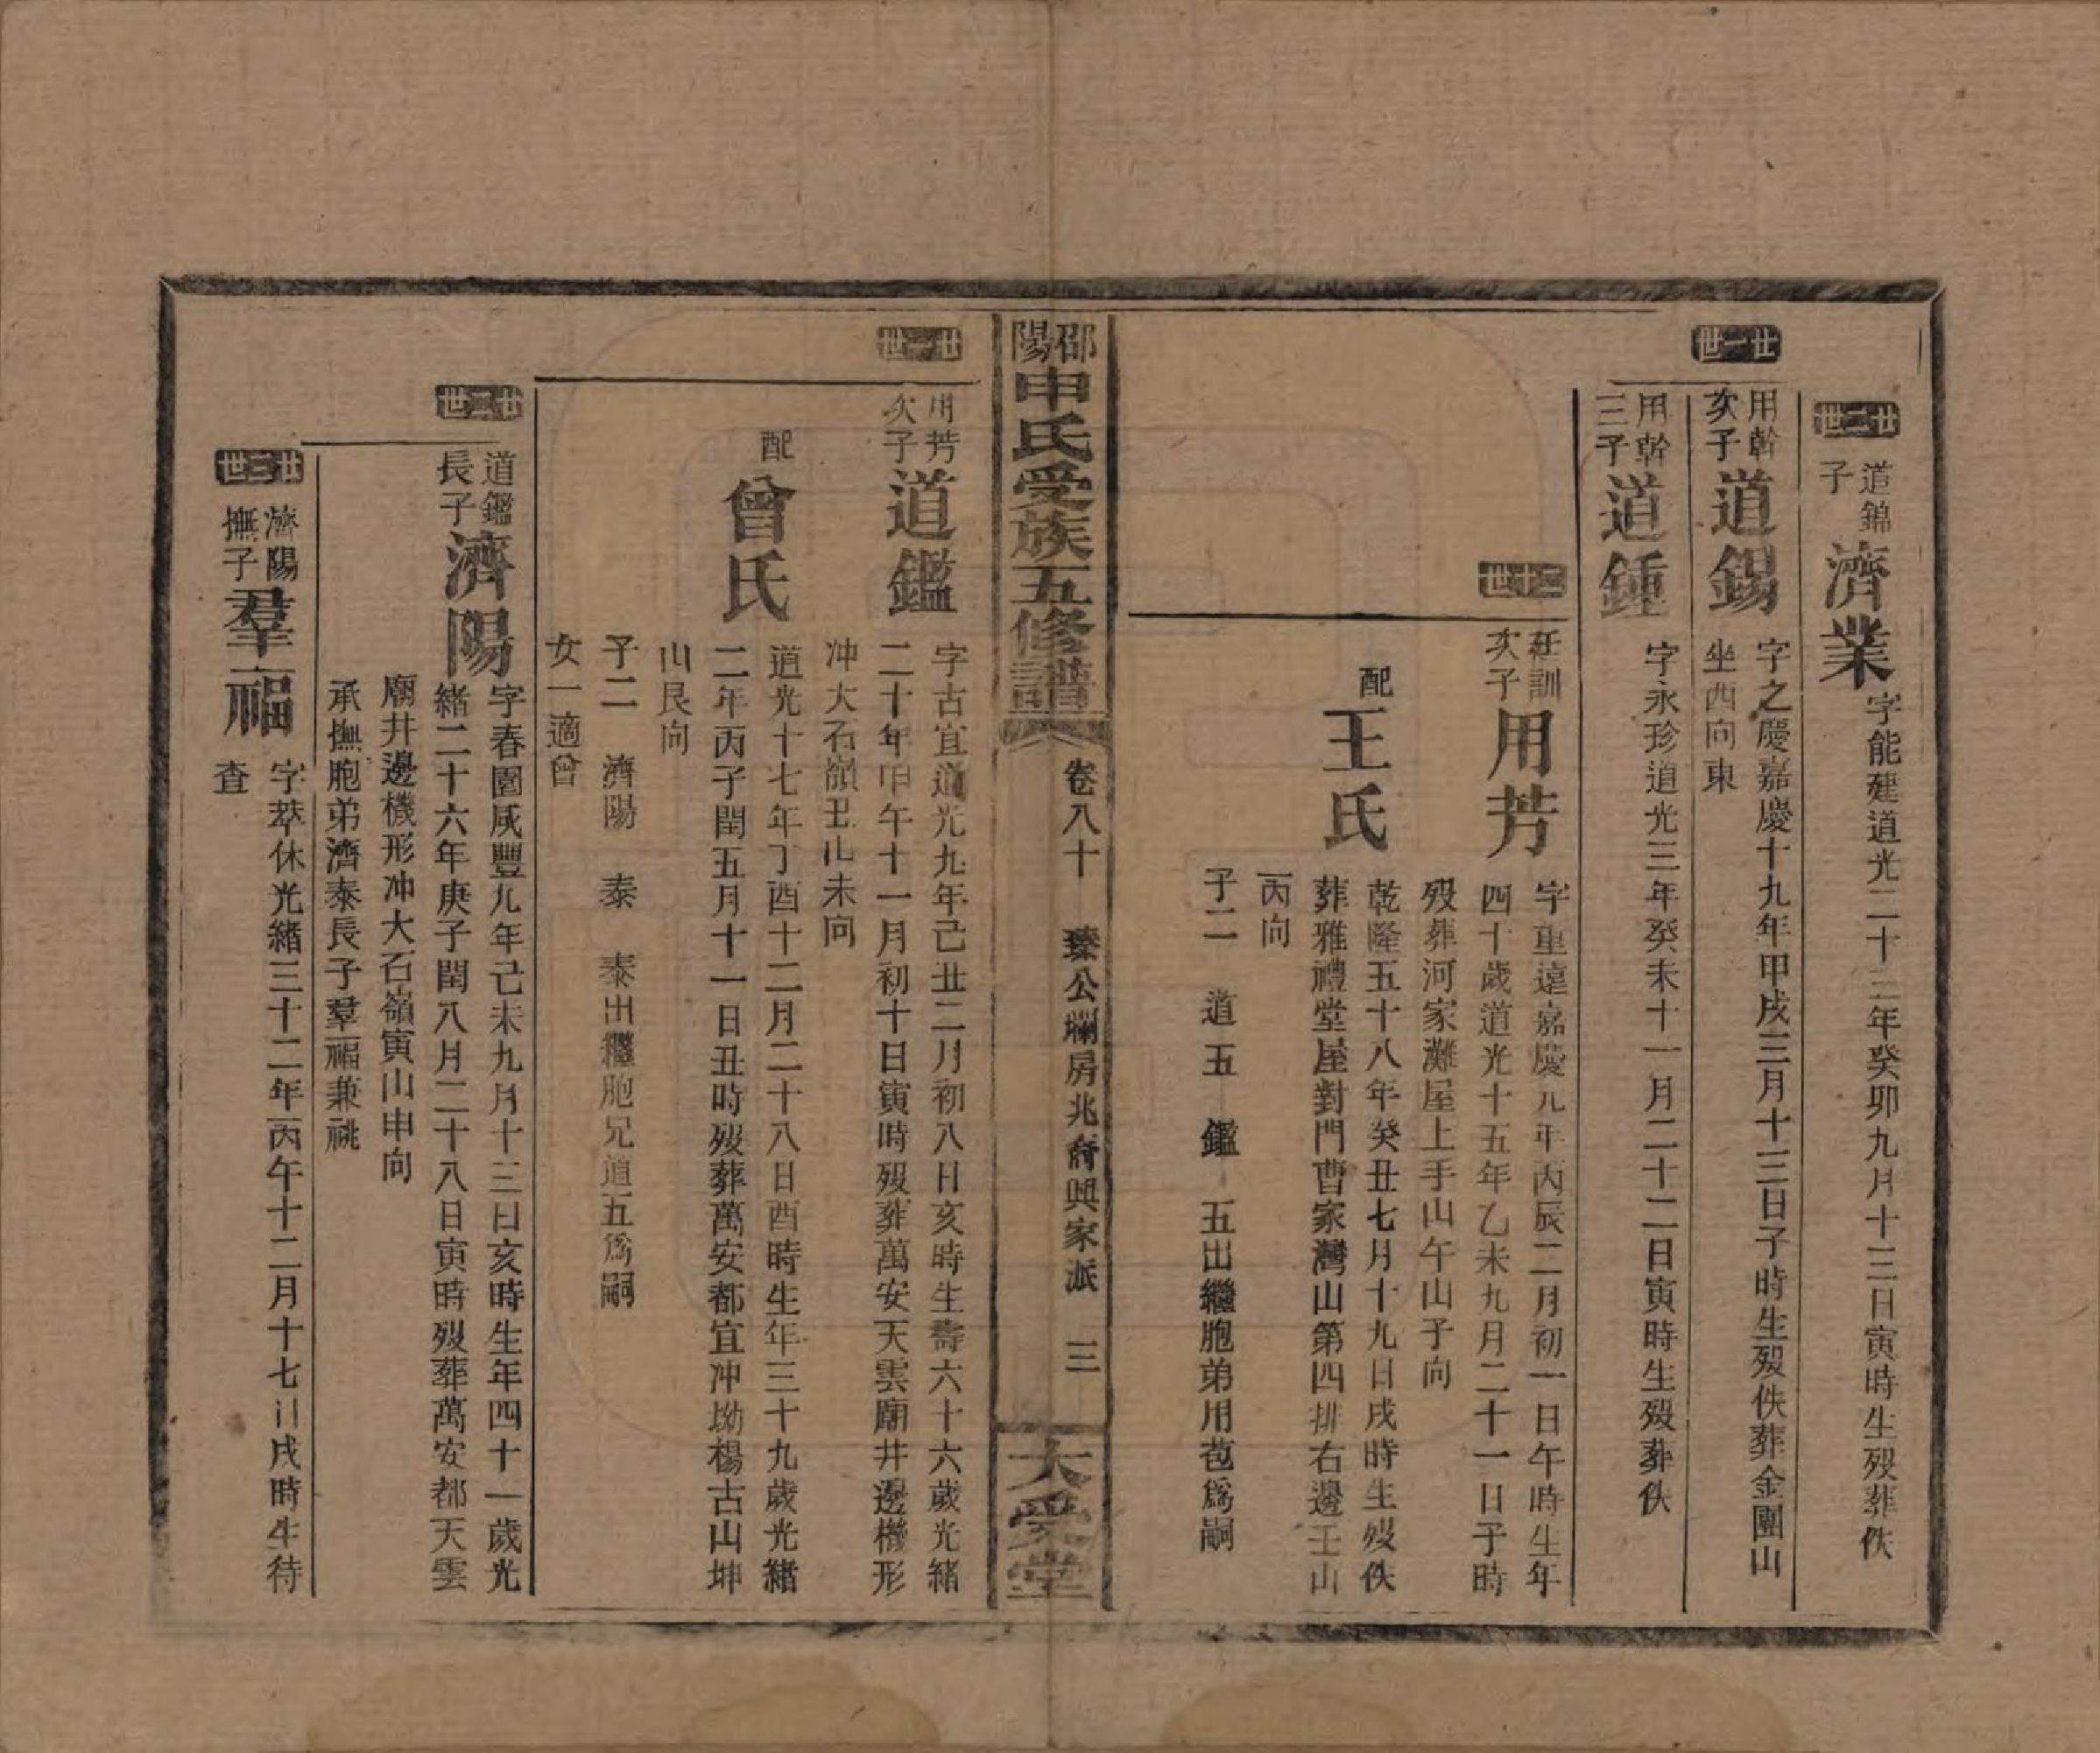 廿二世
道錦子 濟業
字能建道光二十三年癸卯九月十三日寅時生歿葬佚
廿一世
用幹次子 道錫
字之慶嘉慶十九年甲戌三月十三日子時生歿佚葬金團山
坐西向東
用幹三子 道鍾
字永珍道光三年癸未十一月二十二日寅時生歿葬佚
二十世
廷訓次子 用芳
字重遠嘉慶元年丙辰二月初一日午時生年
四十歲道光十五年乙未九月二十一日子時
歿葬河家灘屋上手山午山子向
配 王氏
乾隆五十八年癸丑七月十九日戌時生歿佚
葬雅禮堂屋對門曹家灣山第四排右邊壬山
丙向
子二 道五 鑑 五出繼胞弟用苞爲嗣
邵陽申氏受族五修譜
卷八十 臻公斕房兆裔興家派 三
大受堂
廿一世
用芳次子 道鑑
字古宜道光九年己丑二月初八日亥時生壽六十六歲光緒
二十年甲午十一月初十日寅時歿葬萬安天雲廟井邊機形
冲大石嶺丑山未向
配 曾氏
道光十七年丁酉十二月二十八日酉時生年三十九歲光緒
二年丙子閏五月十一日丑時歿葬萬安都宜冲坳楊古山坤
山艮向
子二 濟陽 泰 泰出繼胞兄道五爲嗣
女一適曾
廿二世
道鑑長子 濟陽
字春圍咸豐九年己未九月十三日亥時生年四十一歲光
緒二十六年庚子閏八月二十八日寅時歿葬萬安都天雲
廟井邊機形冲大石嶺寅山申向
承撫胞弟濟泰長子羣福兼祧
廿三世
濟陽撫子 羣福
字萃休光緒三十二年丙午十二月十七日戌時生待
查